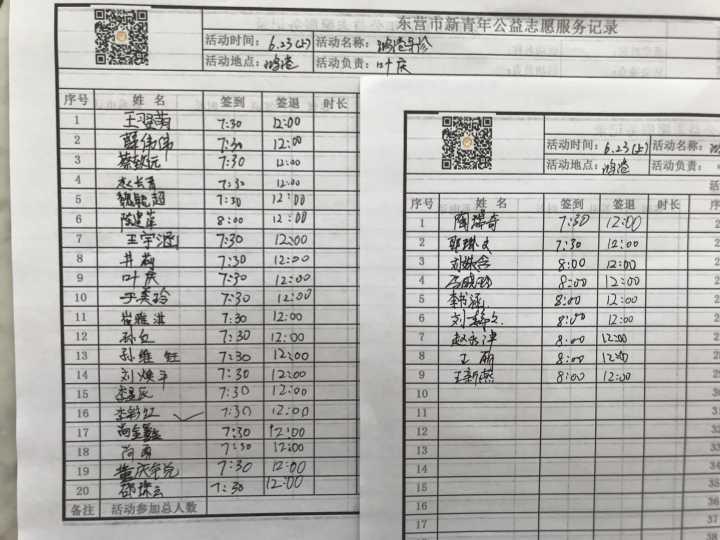 东营市新青年公益志愿服务记录
活动时间： 6.23(上) 活动名称： 鸿港导诊
活动地点： 鸿港 活动负责： 叶庆
序号 姓 名 签到 签退 时长
1 王翌萌 7:30 12:00
2 薛伟伟 7:30 12:00
3 蔡致远 7:30 12:00
4 7:30 12:00
5 魏毓超 7:30 12:00
6 陈建萍 8:00 12:00
7 王宇涵 7:30 12:00
8 井莉 7:30 12:00
9 叶庆 7:30 12:00
10 于美玲 7:30 12:00
11 崔雅淇 7:30 12:00
12 孙红 7:30 12:00
13 孙维钰 7:30 12:00
14 刘焕平 7:30 12:00
15 7:30 12:00
16 李彩红 7:30 12:00
17 尚鑫鑫 7:30 12:00
18 7:30 12:00
19 7:30 12:00
20 邵珠云 7:30 12:00
备注 活动参加总人数
活动时间： 6.23(上) 活动名称：
活动地点： 鸿港 活动负责：
序号 姓 名 签到 签退 时长
1 陶瑞奇 7:30 12:00
2 郭琳文 7:30 12:00
3 刘姝含 8:00 12:00
4 8:00 12:00
5 李书涵 8:00 12:00
6 8:00 12:00
7 8:00 12:00
8 王丽 8:00 12:00
9 王新燕 8:00 12:00
10
11
12
13
14
15
16
17